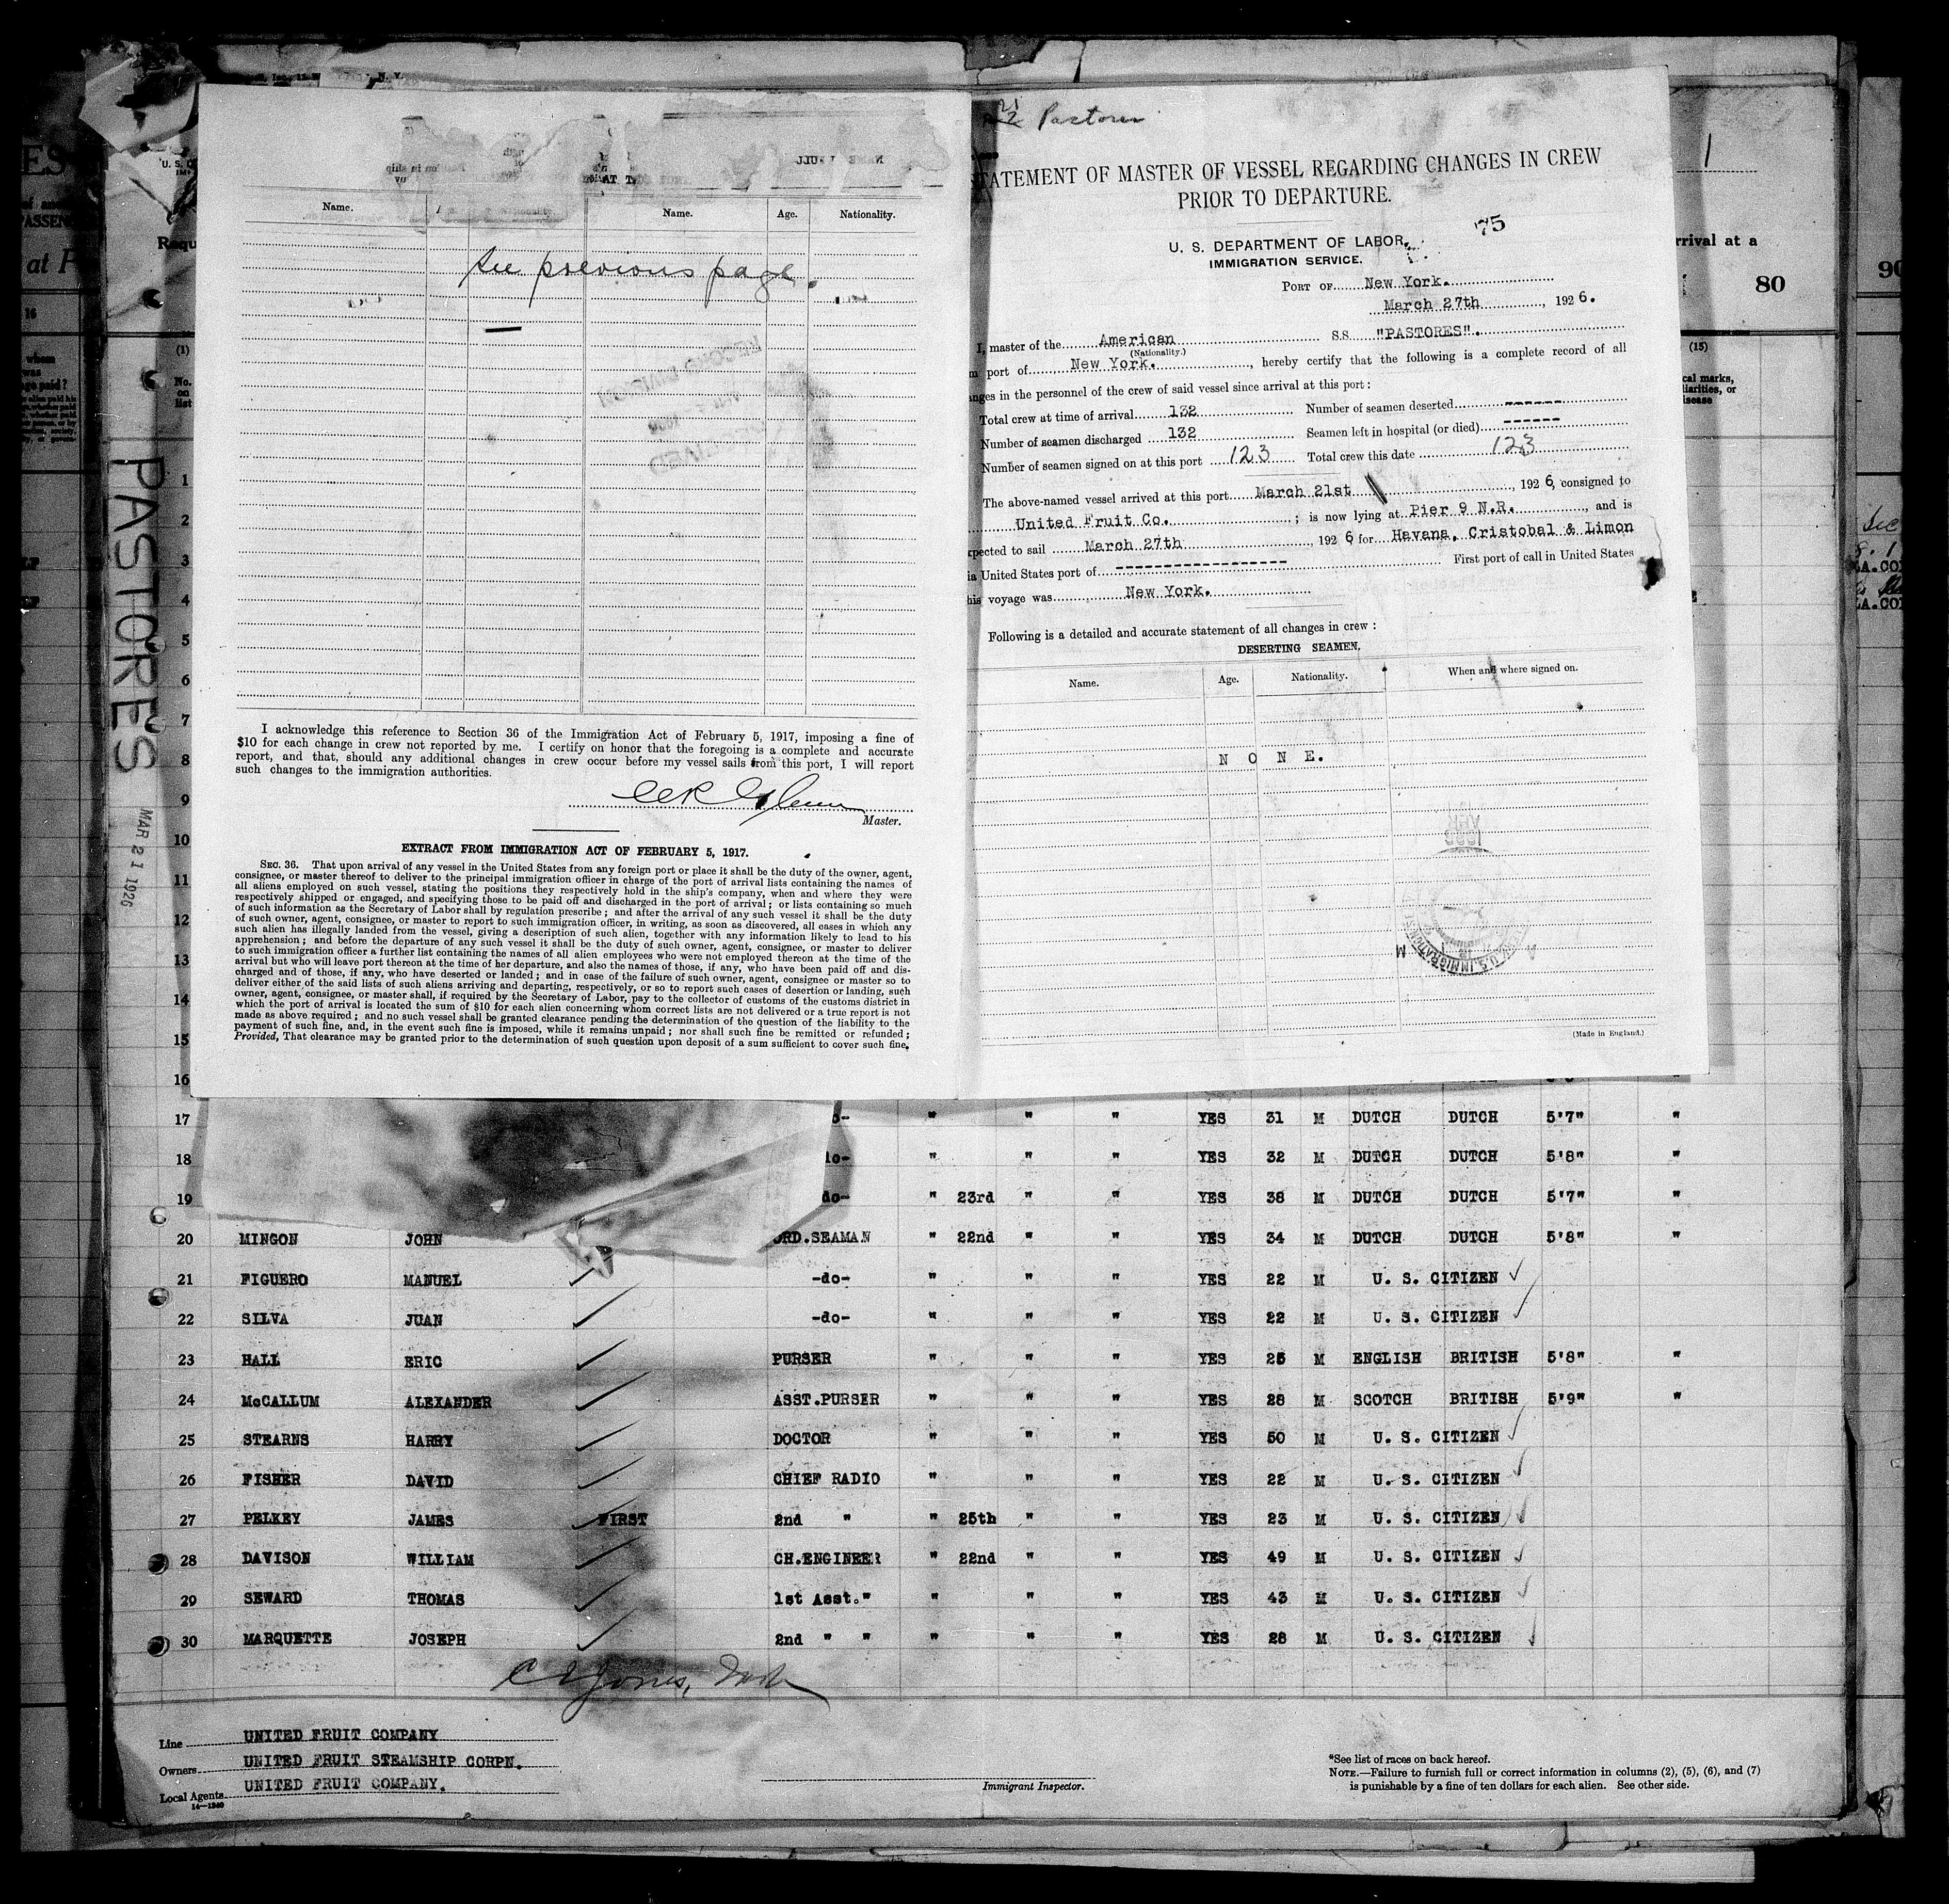 PASTORES
MAR 21 1926
Name.
Name. Age. Nationality.
See previous page.
I acknowledge this reference to Section 36 of the Immigration Act of February 5, 1917, imposing a fine of
$10 for each change in crew not reported by me. I certify on honor that the foregoing is a complete and accurate
report, and that, should any additional changes in crew occur before my vessel sails from this port, I will report
such changes to the immigration authorities.
Master.
EXTRACT FROM IMMIGRATION ACT OF FEBRUARY 5, 1917.
SEC. 36. That upon arrival of any vessel in the United States from any foreign port or place it shall be the duty of the owner, agent,
consignee, or master thereof to deliver to the principal immigration officer in charge of the port of arrival lists containing the names of
all aliens employed on such vessel, stating the positions they respectively hold in the ship's company, when and where they were
respectively shipped or engaged, and specifying those to be paid off and discharged in the port of arrival; or lists containing so much
of such information as the Secretary of Labor shall by regulation prescribe; and after the arrival of any such vessel it shall be the duty
of such owner, agent, consignee, or master to report to such immigration officer, in writing, as soon as discovered, all cases in which any
such alien has illegally landed from the vessel, giving a description of such alien, together with any information likely to lead to his
apprehension; and before the departure of any such vessel it shall be the duty of such owner, agent, consignee, or master to deliver
to such immigration officer a further list containing the names of all alien employees who were not employed thereon at the time of the
arrival but who will leave port thereon at the time of her departure, and also the names of those, if any, who have been paid off and dis-
charged and of those, if any, who have deserted or landed; and in case of the failure of such owner, agent, consignee or master so to
deliver either of the said lists of such aliens arriving and departing, respectively, or so to report such cases of desertion or landing, such
owner, agent, consignee, or master shall, if required by the Secretary of Labor, pay to the collector of customs of the customs district in
which the port of arrival is located the sum of $10 for each alien concerning whom correct lists are not delivered or a true report is not
made as above required; and no such vessel shall be granted clearance pending the determination of the question of the liability to the
payment of such fine, and, in the event such fine is imposed, while it remains unpaid; nor shall such fine be remitted or refunded;
Provided, That clearance may be granted prior to the determination of such question upon deposit of a sum sufficient to cover such fine.
Pastores
STATEMENT OF MASTER OF VESSEL REGARDING CHANGES IN CREW
PRIOR TO DEPARTURE.
75
U. S. DEPARTMENT OF LABOR,
IMMIGRATION SERVICE.
PORT OF New York.
March 27th, 1926.
I, master of the American S.S. "PASTORES".
(Nationality.)
port of New York., hereby certify that the following is a complete record of all
in the personnel of the crew of said vessel since arrival at this port:
Total crew at time of arrival 132 Number of seamen deserted -------
Number of seamen discharged 132 Seamen left in hospital (or died) -------
Number of seamen signed on at this port 123 Total crew this date 123
The above-named vessel arrived at this port March 21st, 1926, consigned to
United Fruit Co.; is now lying at Pier 9 N.R., and is
expected to sail March 27th, 1926 for Havana, Cristobal & Limon
via United States port of ------------------ First port of call in United States
this voyage was New York.
Following is a detailed and accurate statement of all changes in crew:
DESERTING SEAMEN.
Name. Age. Nationality. When and where signed on.
N O N E.
(Made in England.)
arrival at a
80
90
(1)
No.
on
list
(15)
1
2
3
4
5
6
7
8
9
10
11
12
13
14
15
16
17 " " " YES 31 M DUTCH DUTCH 5'7" "
18 " " " YES 32 M DUTCH DUTCH 5'8" "
19 do- " 23rd " " YES 38 M DUTCH DUTCH 5'7" "
20 MINGON JOHN ORD.SEAMAN " 22nd " " YES 34 M DUTCH DUTCH 5'8" "
21 FIGUERO MANUEL -do- " " " YES 22 M U. S. CITIZEN
22 SILVA JUAN -do- " " " YES 22 M U. S. CITIZEN
23 HALL ERIC PURSER " " " YES 25 M ENGLISH BRITISH 5'8" "
24 McCALLUM ALEXANDER ASST.PURSER " " " YES 28 M SCOTCH BRITISH 5'9" "
25 STEARNS HARRY DOCTOR " " " YES 50 M U. S. CITIZEN
26 FISHER DAVID CHIEF RADIO " " " YES 22 M U. S. CITIZEN
27 PELKEY JAMES FIRST 2nd " " 25th " " YES 23 M U. S. CITIZEN
28 DAVISON WILLIAM CH.ENGINEER " 22nd " " YES 49 M U. S. CITIZEN
29 SEWARD THOMAS 1st Asst." " " " YES 43 M U. S. CITIZEN
30 MARQUETTE JOSEPH 2nd " " " " " YES 28 M U. S. CITIZEN
Line UNITED FRUIT COMPANY
Owners UNITED FRUIT STEAMSHIP CORPN.
Local Agents UNITED FRUIT COMPANY.
14—1240
Immigrant Inspector.
*See list of races on back hereof.
NOTE.—Failure to furnish full or correct information in columns (2), (5), (6), and (7)
is punishable by a fine of ten dollars for each alien. See other side.